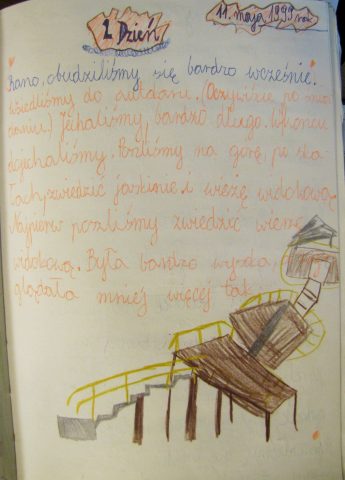 1. Dzień
11. maja 1999 rok
Rano, obudziliśmy się bardzo wcześnie.
Wsiedliśmy do autokaru. (Oczywiście po śnia
daniu.) Jechaliśmy, bardzo długo. Wkońcu
dojechaliśmy. Poszliśmy na górę po ska
łach, zwiedzić jaskinie i wieżę widokową.
Najpierw poszliśmy zwiedzić wieżę
widokową. Była bardzo wysoka,
glądała mniej więcej tak